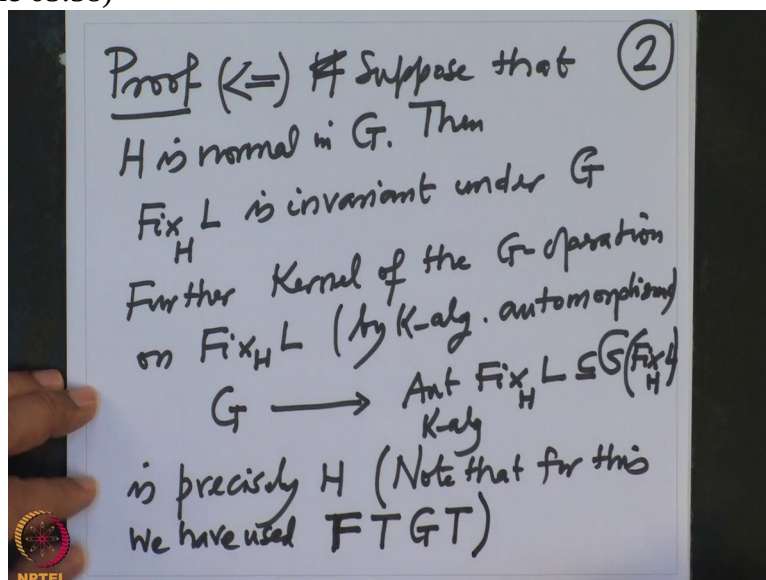 Proof (<=) Suppose that
②
H is normal in G. Then
Fix_H L is invariant under G
Further Kernel of the G-operation
on Fix_H L (by K-alg. automorphisms)
G ⟶ Aut_{K-alg} Fix_H L ⊆ G(Fix_H L)
is precisely H (Note that for this
we have used FTGT)
NPTEL